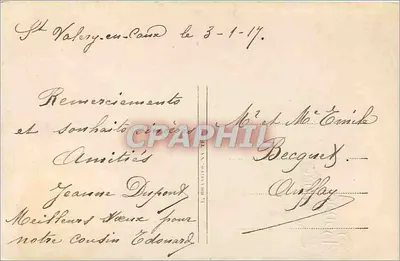 St Valery-en-Caux le 3-1-17.
Remerciements
et souhaits sincères
Amitiés
Jeanne Dupont
Meilleurs vœux pour
notre cousin Edouard.
Mr et Me Emile
Becquet.
Auffay
CPAPHIL